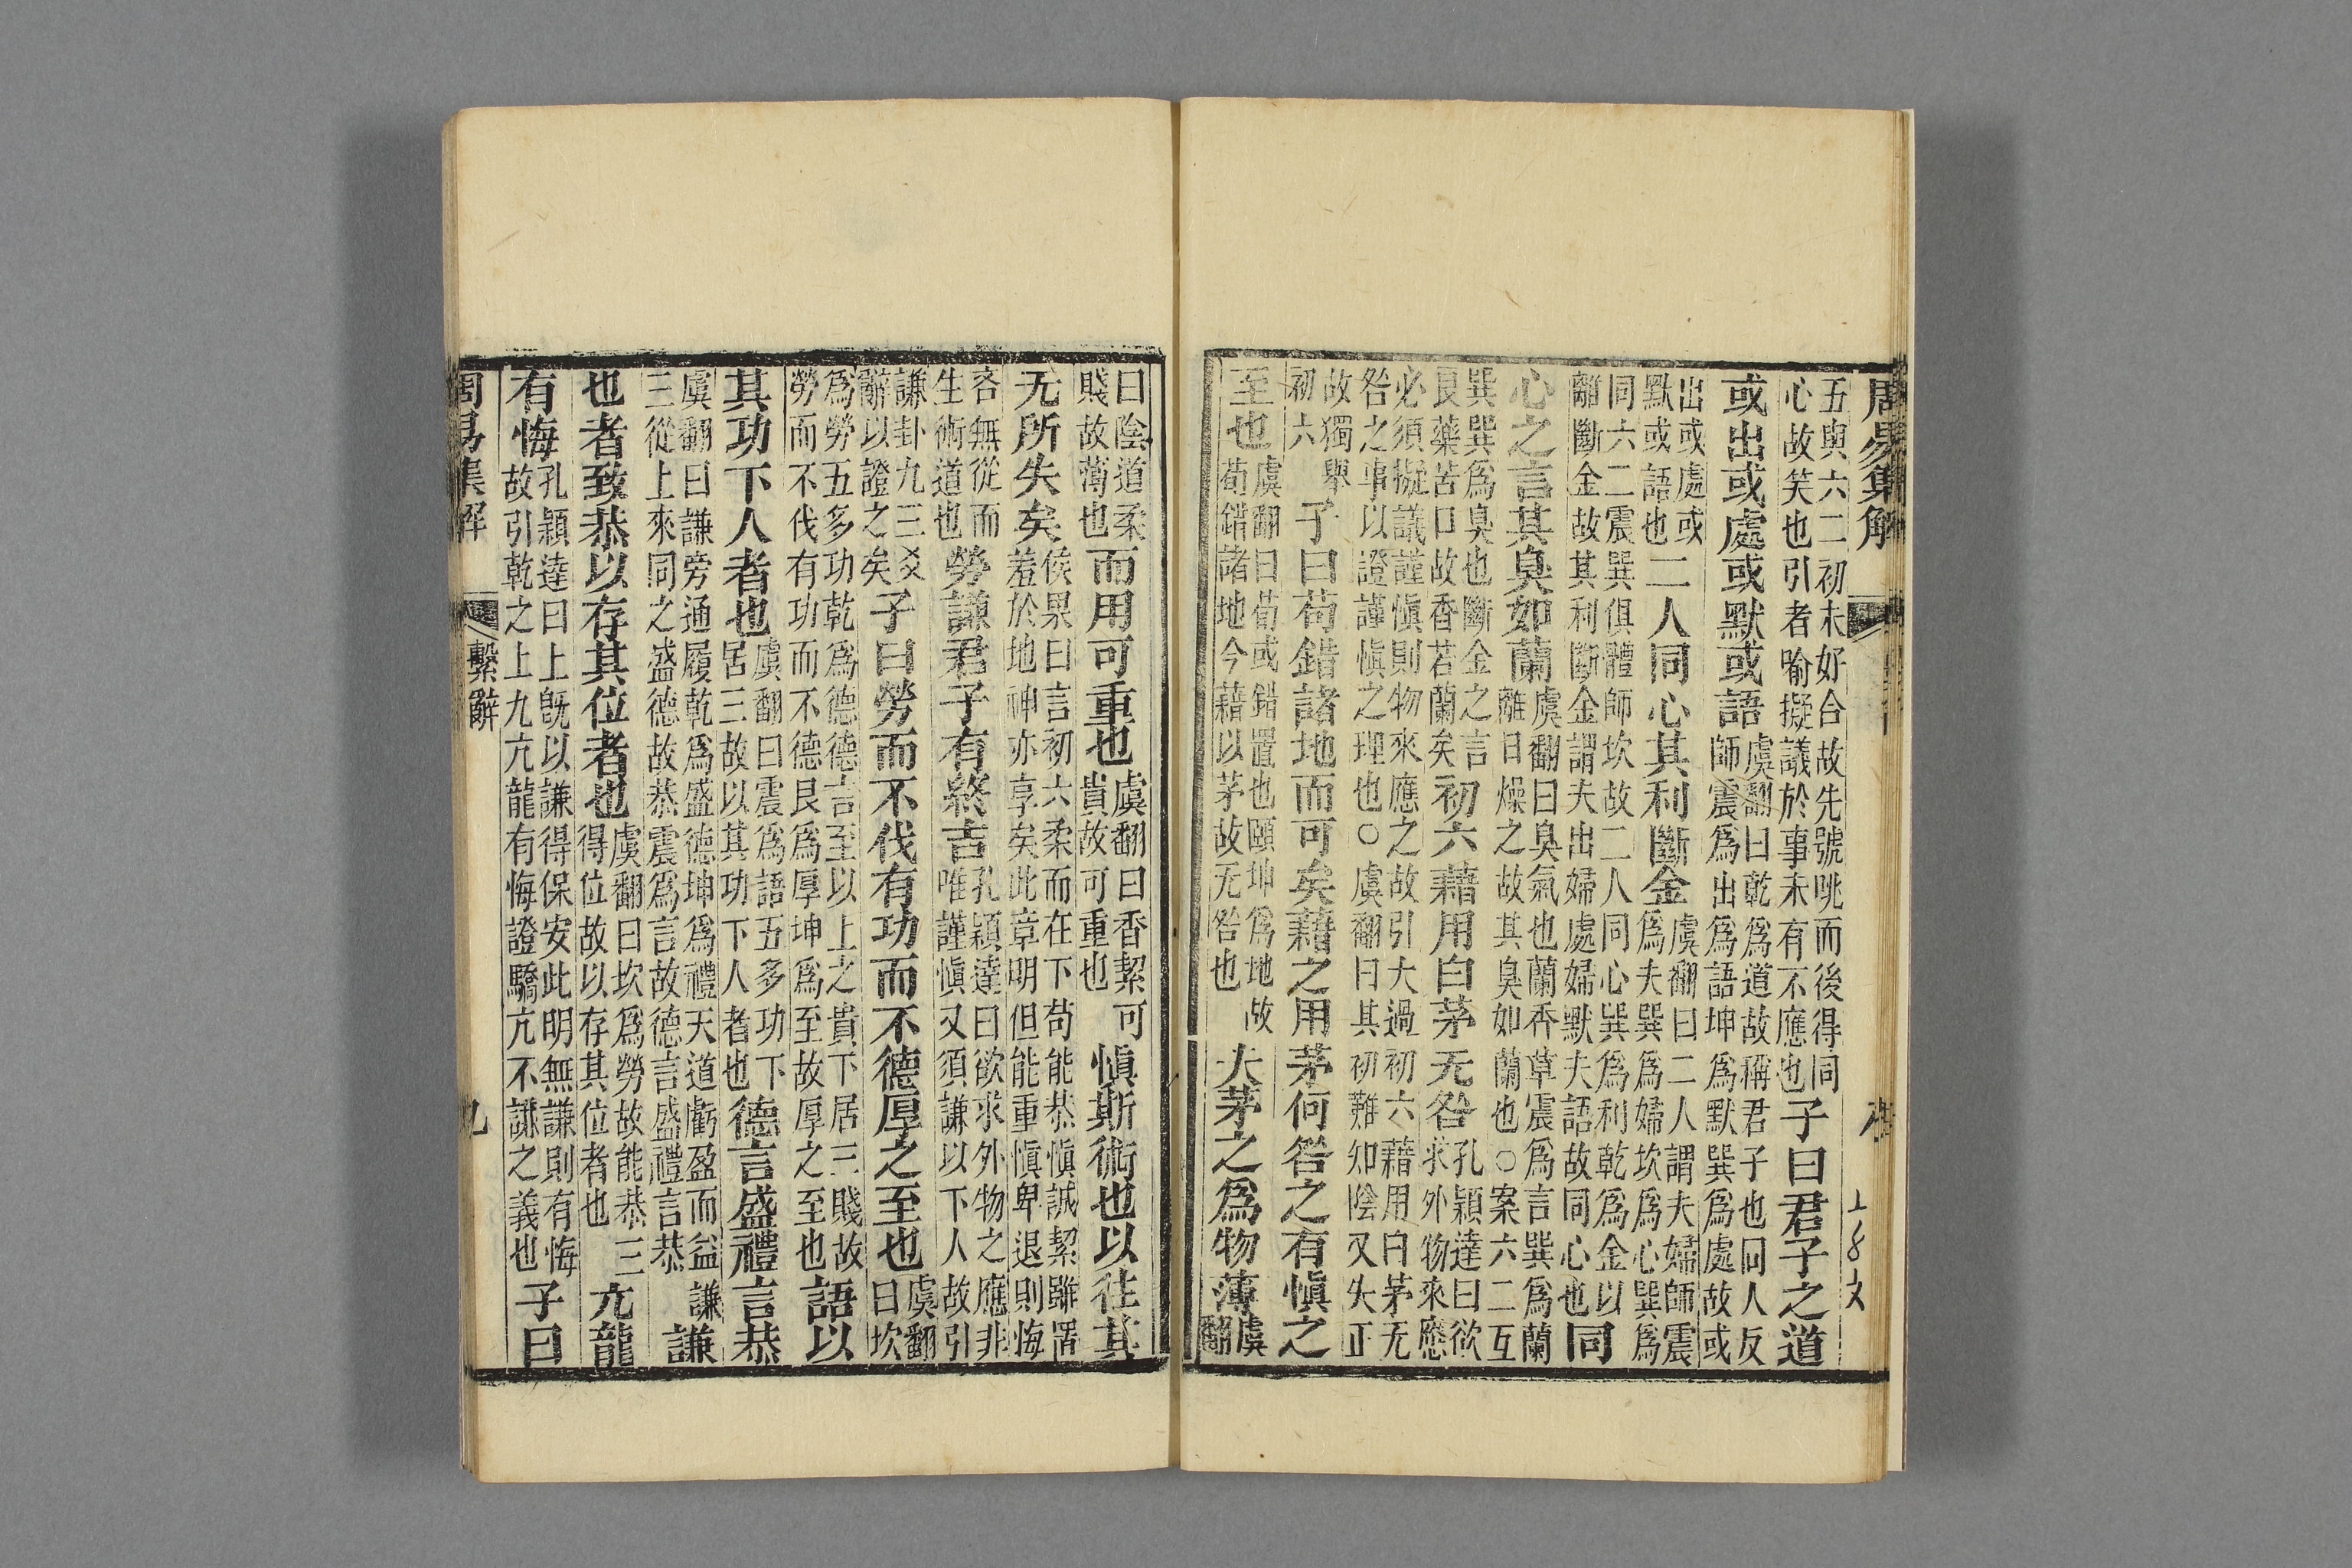 周易集解
五與六二初未好合故先號咷而後得同心故笑也引者喻擬議於事未有不應也子曰君子之道
或出或處或默或語虞翻曰乾爲道故稱君子也同人反師震爲出爲語坤爲默巽爲處故或
出或處或默或語也二人同心其利斷金虞翻曰二人謂夫婦師震爲夫巽爲婦坎爲心巽爲
同六二震巽俱體師坎故二人同心巽爲利乾爲金以離斷金故其利斷金謂夫出婦處婦默夫語故同心也同
心之言其臭如蘭虞翻曰臭氣也蘭香草震爲言巽爲蘭離日燥之故其臭如蘭也○案六二互
巽巽爲臭也斷金之言良藥苦口故香若蘭矣初六藉用白茅无咎孔穎達曰欲求外物來應
必須擬議謹愼則物來應之故引大過初六藉用白茅无咎之事以證謹愼之理也○虞翻曰其初難知陰又失正
故獨舉初六子曰苟錯諸地而可矣藉之用茅何咎之有愼之
至也虞翻曰苟或錯置也頤坤爲地故苟錯諸地今藉以茅故无咎也夫茅之爲物薄虞翻
曰陰道柔賤故薄也而用可重也虞翻曰香絜可貴故可重也愼斯術也以往其
无所失矣侯果曰言初六柔而在下苟能恭愼誠絜雖置羞於地神亦享矣此章明但能重愼卑退則悔
吝無從而生術道也勞謙君子有終吉孔穎達曰欲求外物之應非唯謹愼又須謙以下人故引
謙卦九三爻辭以證之矣子曰勞而不伐有功而不德厚之至也虞翻曰坎
爲勞五多功乾爲德德言至以上之貴下居三賤故勞而不伐有功而不德艮爲厚坤爲至故厚之至也語以
其功下人者也虞翻曰震爲語五多功下居三故以其功下人者也德言盛禮言恭
虞翻曰謙旁通履乾爲盛德坤爲禮天道虧盈而益謙三從上來同之盛德故恭震爲言故德言盛禮言恭謙
也者致恭以存其位者也虞翻曰坎爲勞故能恭三得位故以存其位者也亢龍
有悔孔穎達曰上旣以謙得保安此明無謙則有悔故引乾之上九亢龍有悔證驕亢不謙之義也子曰
周易集解 繫辭 九